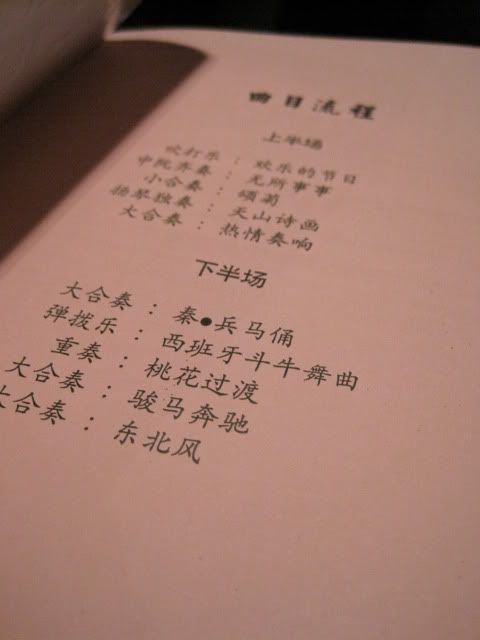 曲目流程
上半场
吹打乐：欢乐的节日
中阮齐奏：无所事事
小合奏：颂菊
扬琴独奏：天山诗画
大合奏：热情奏响
下半场
大合奏：秦●兵马俑
弹拨乐：西班牙斗牛舞曲
重奏：桃花过渡
大合奏：骏马奔驰
大合奏：东北风